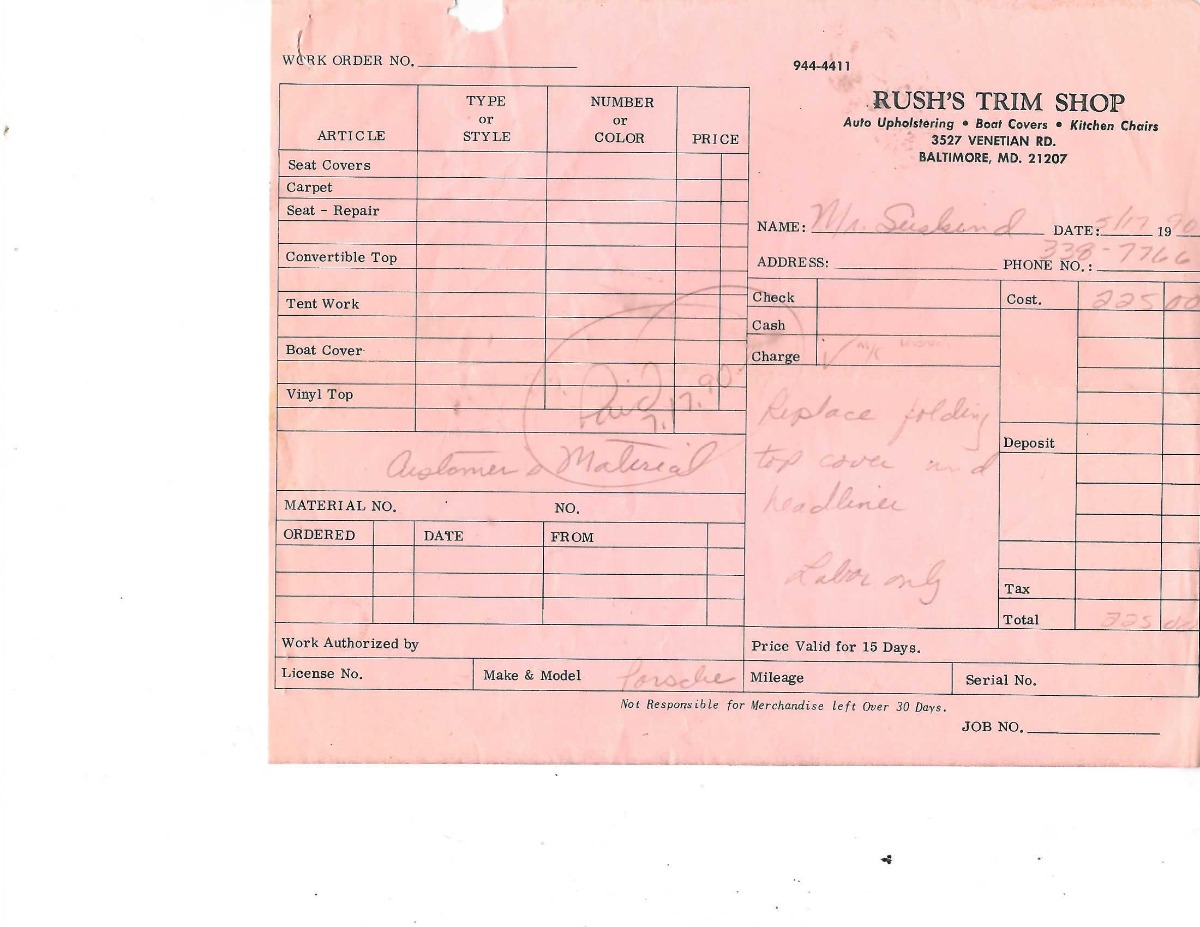 WORK ORDER NO.
944-4411
RUSH'S TRIM SHOP
Auto Upholstering • Boat Covers • Kitchen Chairs
3527 VENETIAN RD.
BALTIMORE, MD. 21207
NAME: Mr. Suskind DATE: 5/17 1990
ADDRESS: PHONE NO.: 338-7766
ARTICLE TYPE or STYLE NUMBER or COLOR PRICE
Seat Covers
Carpet
Seat - Repair
Convertible Top
Tent Work
Boat Cover
Vinyl Top
Paid
7.17.90
Customer's Material
MATERIAL NO. NO.
ORDERED DATE FROM
Check
Cash
Charge √ M/C
Cost. 225 00
Replace folding
top cover and
headliner
Labor only
Deposit
Tax
Total 225 00
Work Authorized by
Price Valid for 15 Days.
License No. Make & Model Porsche Mileage Serial No.
Not Responsible for Merchandise left Over 30 Days.
JOB NO.